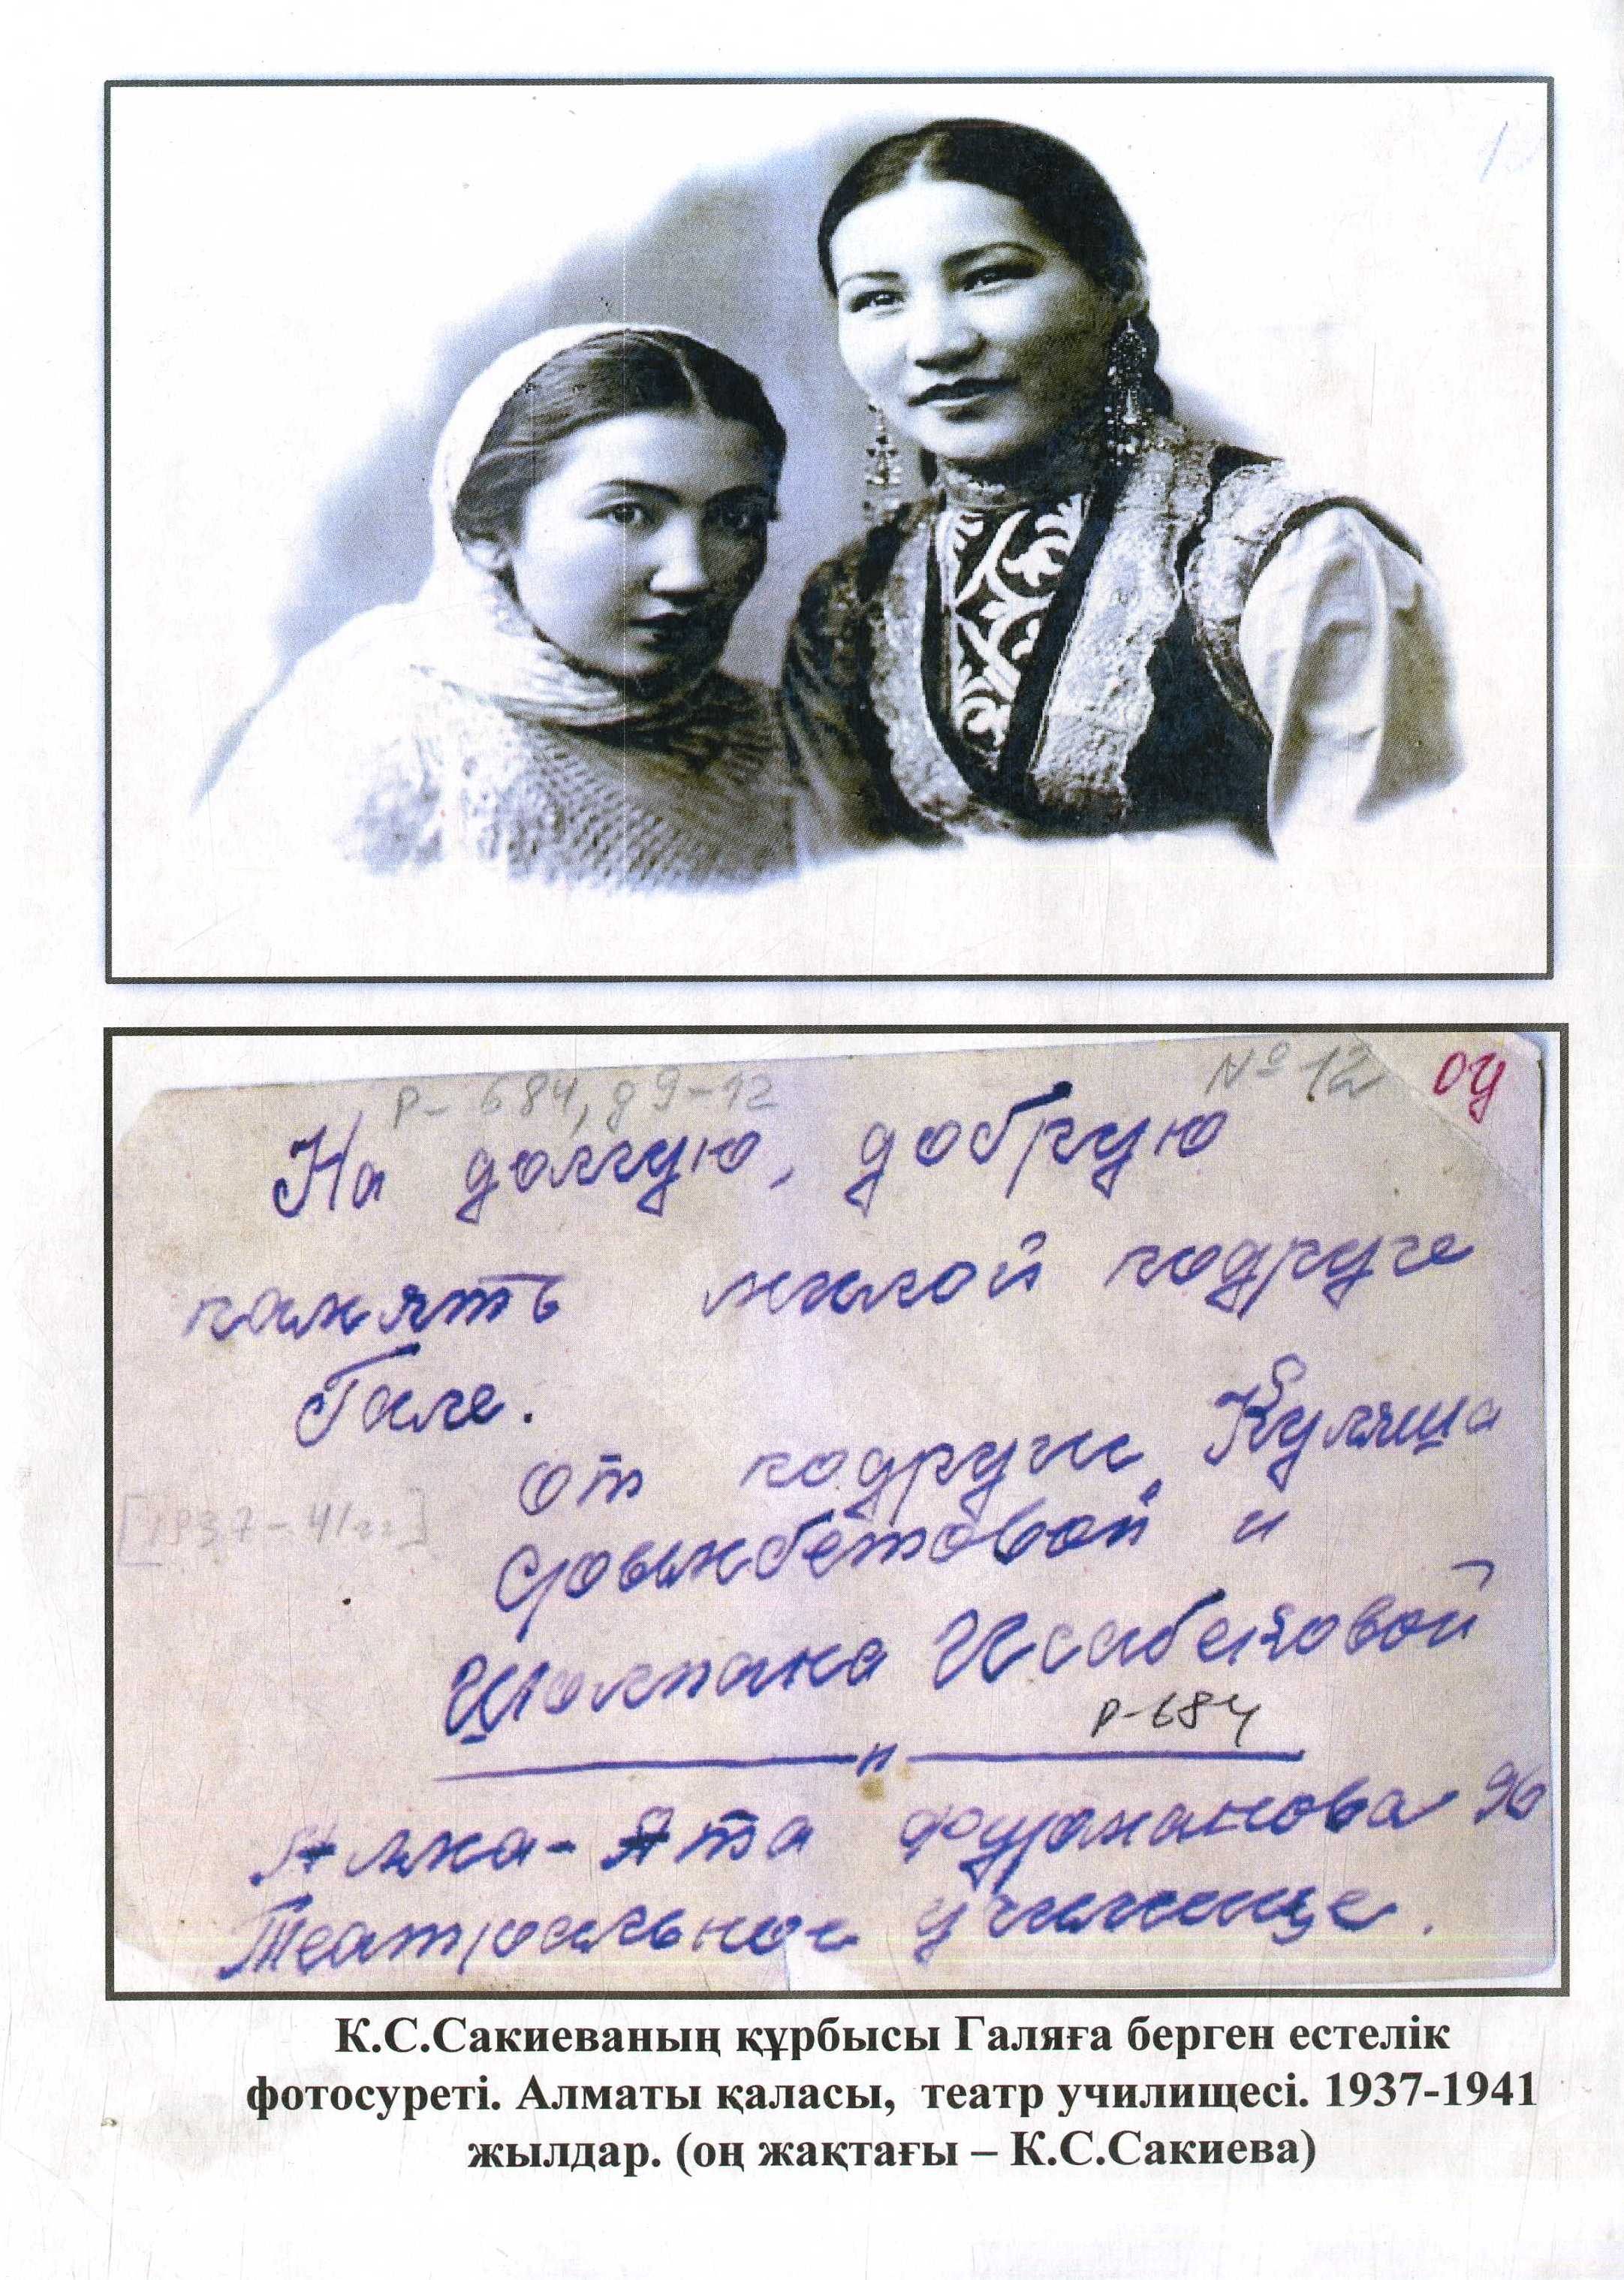 Р-684, д 9-12
№ 12
На долгую, добрую
память милой подруге
Гале.
от подруги Куляша
[1937-41гг.]
и
Шолпана Исабековой
Р-684
"
Алма-Ата Фурманова 96
Театральное училище.
К.С.Сакиеваның құрбысы Галяға берген естелік
фотосуреті. Алматы қаласы, театр училищесі. 1937-1941
жылдар. (оң жақтағы – К.С.Сакиева)